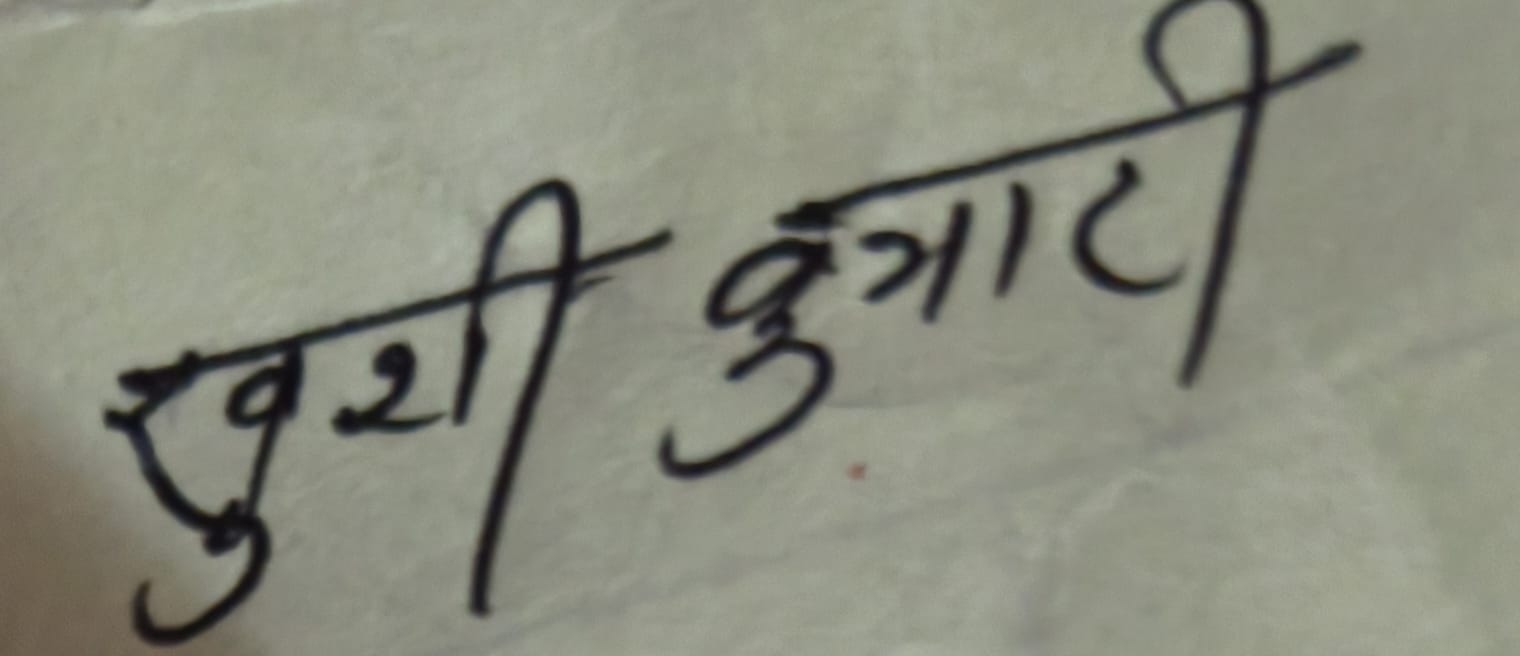 खुशी कुमारी